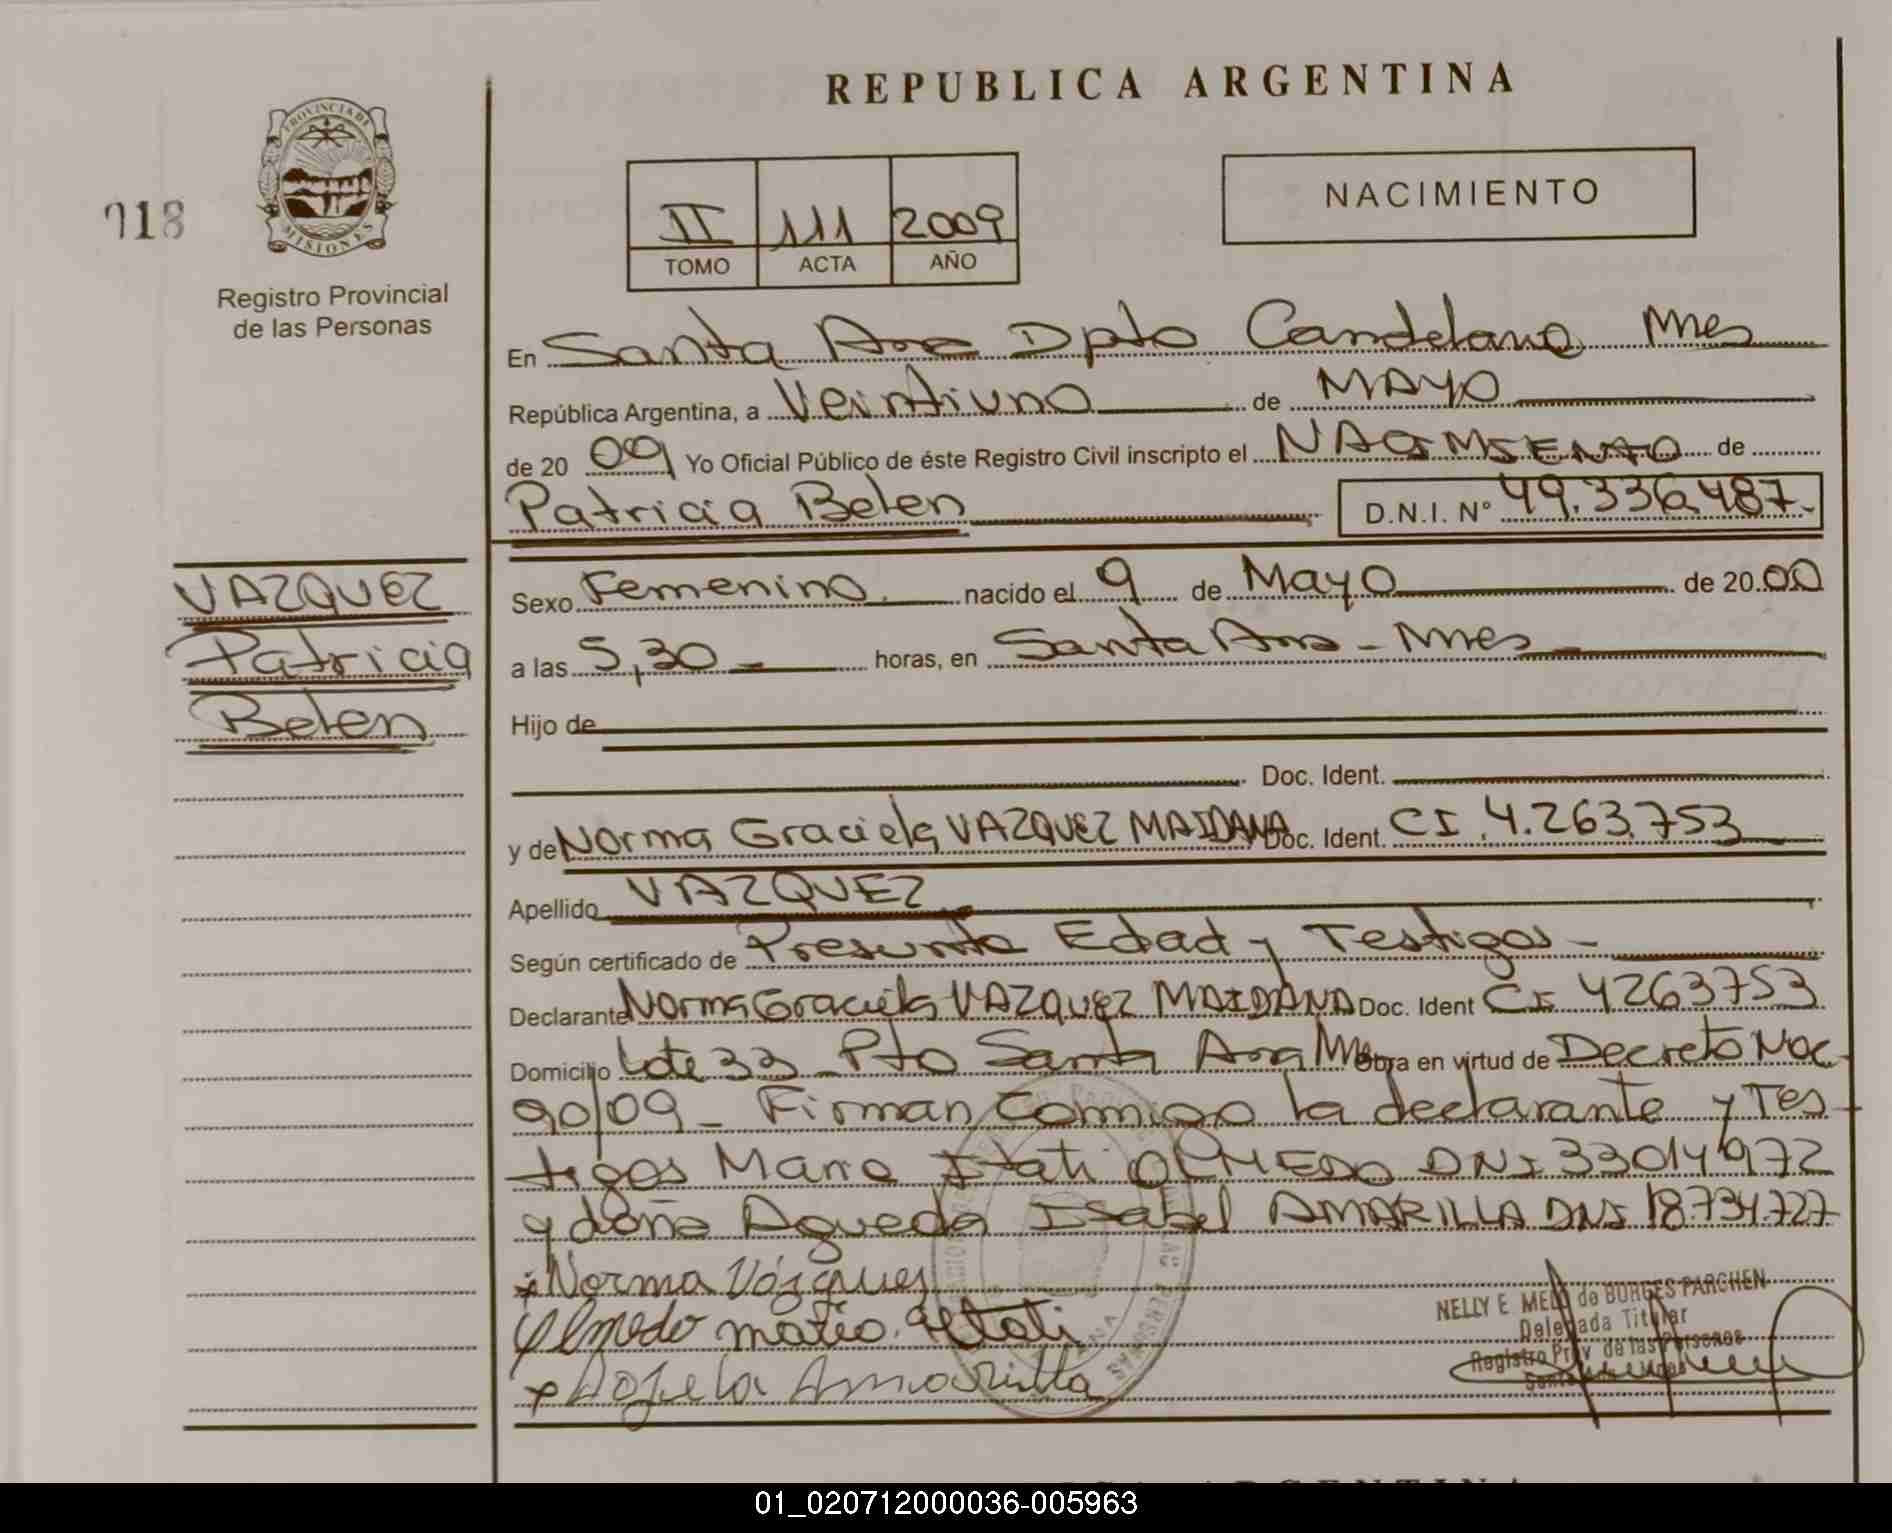 REPUBLICA ARGENTINA
PROVINCIA DE
MISIONES
918
Registro Provincial
de las Personas
II 111 2009
TOMO ACTA AÑO
NACIMIENTO
En Santa Ana Dpto Candelaria Mnes
República Argentina, a Veintiuno de MAYO
de 2009 Yo Oficial Público de éste Registro Civil inscripto el NACIMIENTO de
Patricia Belen D.N.I. N° 49.336.487.-
VAZQUEZ
Patricia
Belen
Sexo Femenino nacido el 9 de Mayo de 20.00
a las 5,30 - horas, en Santa Ana - Mnes -
Hijo de
Doc. Ident.
y de Norma Graciela VAZQUEZ MAIDANA Doc. Ident. CI. 4.263.753
Apellido VAZQUEZ
Según certificado de Presunta Edad y Testigos -
Declarante Norma Graciela VAZQUEZ MAIDANA Doc. Ident CI 4263753
Domicilio Lote 33 - Pto Santa Ana Mnes Obra en virtud de Decreto Nac
90/09 - Firman conmigo la declarante y Tes-
tigos Maria Itati OLMEDO DNI 33014972
y doña Agueda Isabel AMARILLA DNI 18734.727
x Norma Vázquez
Olmedo maria. Itati
x Amarilla
NELLY E. MELO de BORGES PARCHEN
Delegada Titular
Registro Prov. de las Personas
01_020712000036-005963